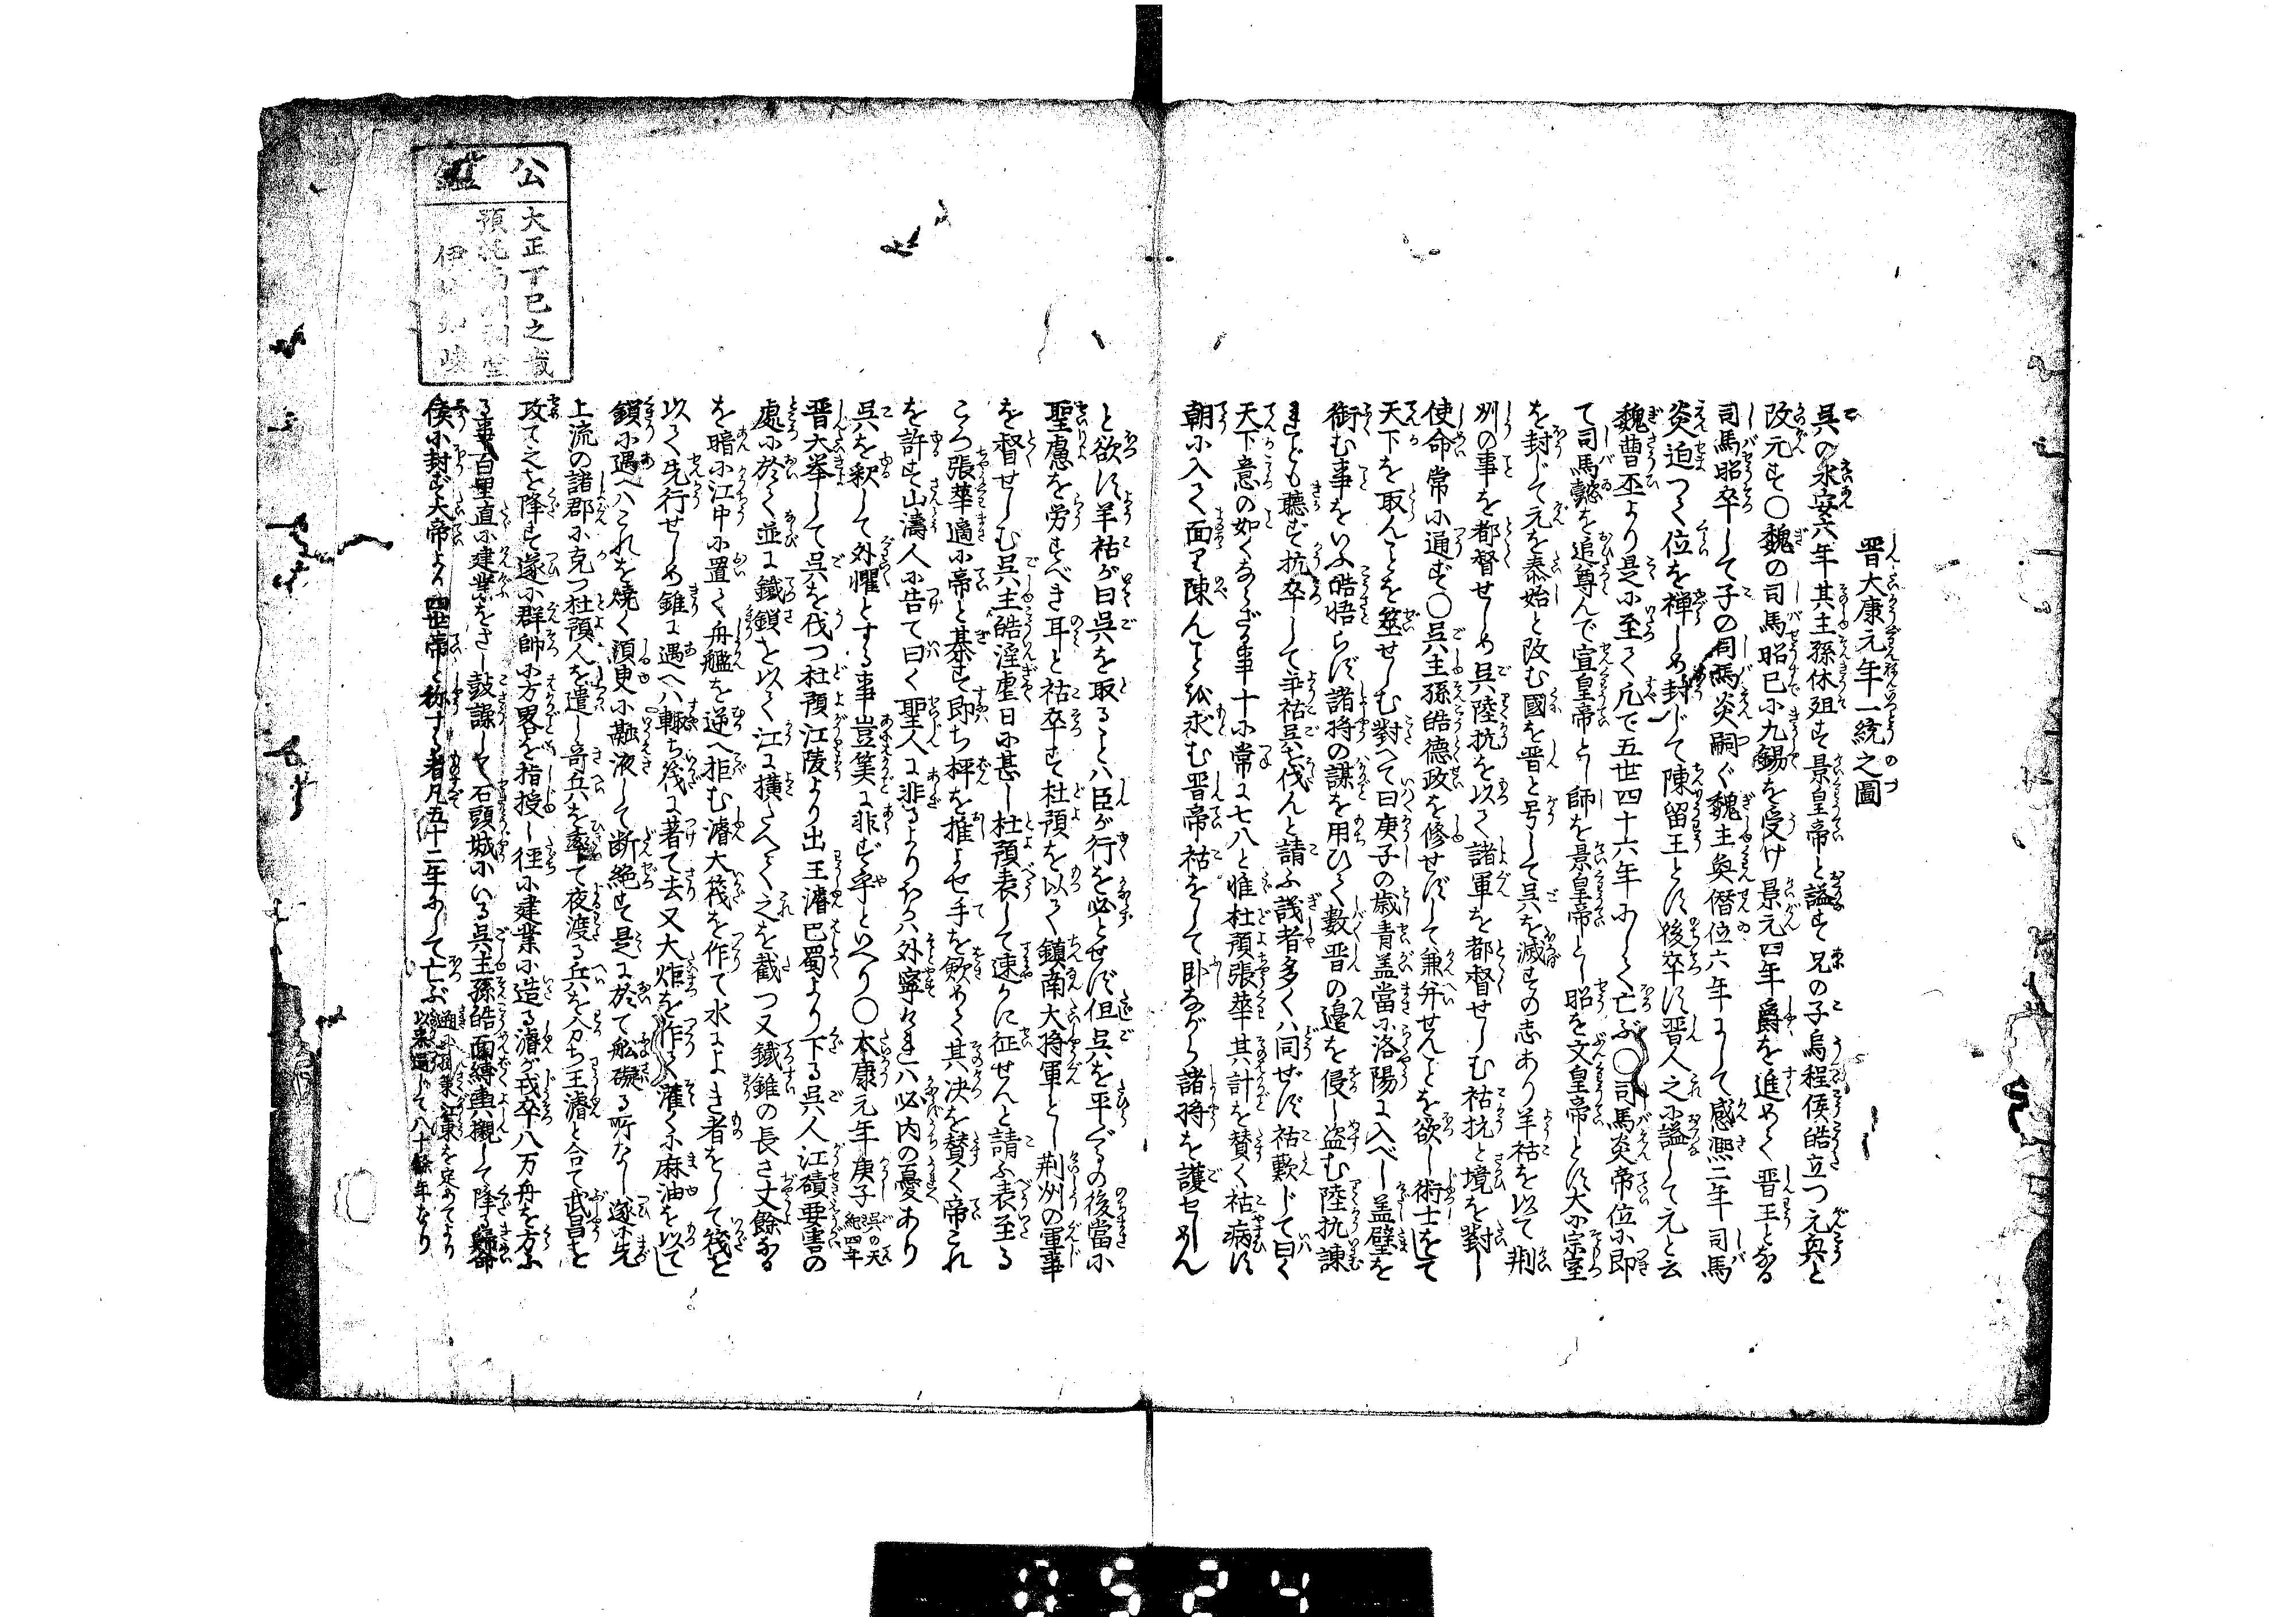 晋大康元年一統之圖
呉の永安六年其主孫休殂す景皇帝と謚す兄の子烏程侯皓立つ元興と
改元す〇魏の司馬昭已に九錫を受け景元四年爵を進めて晋王となる
司馬昭卒して子の司馬炎嗣ぐ魏主奐僭位六年にして咸熈二年司馬
炎迫つて位を禅しめ封じて陳留王とす後卒す晋人之に謚して元と云
魏曹丕より是に至て凡て五世四十六年にして亡ぶ〇司馬炎帝位に即
て司馬懿を追尊んで宣皇帝とし師を景皇帝とし昭を文皇帝とす大に宗室
を封じて元を泰始と改む國を晋と号して呉を滅すの志あり羊祜を以て荊
州の事を都督せしめ呉陸抗を以て諸軍を都督せしむ祜抗と境を對し
使命常に通ず〇呉主孫皓德政を修せずして兼并せんことを欲し術士をして
天下を取んことを筮せしむ對へて曰庚子の歳青盖當に洛陽に入べし盖璧を
銜む事をいふ皓悟らず諸将の謀を用ひて數晋の邉を侵し盗む陸抗諌
れども聽ず抗卒して羊祜呉を伐んと請ふ議者多くハ同ぜず祜歎じて曰く
天下意の如くならざる事十に常に七八と惟杜預張華其計を賛く祜病す
朝に入て面り陳んことを求む晋帝祜をして卧ながら諸将を護せしめん
と欲す羊祜が曰呉を取ることハ臣が行を必とせず但呉を平ぐるの後當に
聖慮を労すべき耳と祜卒す杜預を以て鎮南大将軍とし荊州の軍事
を督せしむ呉主皓淫虐日に甚し杜預表して速かに征せんと請ふ表至る
ころ張華適に帝と棊す即ち枰を推よせ手を斂めて其决を賛く帝これ
を許す山濤人に告て曰く聖人に非るよりハ外寧けれバ必内の憂あり
呉を釈して外懼とする事豈筭に非ずやといへり〇太康元年庚子呉の天紀四年
晋大挙して呉を伐つ杜預江陵より出王濬巴蜀より下る呉人江磧要害の
處に於て並に鐵鎖を以て江に横たへて之を截つ又鐵錐の長さ丈餘なる
を暗に江中に置て舟艦を逆へ拒む濬大筏を作て水によき者をして筏を
以て先行せしめ錐に遇へバ輙ち筏に著て去又大炬を作て灌くに麻油を以てし
鎖に遇へバこれを燒く須臾に融液して断絶す是に於て舩礙る所なし遂に先
上流の諸郡に克つ杜預人を遣し竒兵を率て夜渡る兵を分ち王濬と合て武昌を
攻て之を降す遂に群帥に方畧を指授し径に建業に造る濬が戎卒八万舟を方ふ
る事百里直に建業をさし鼓譟して石頭城にいる呉主孫皓面縛輿櫬して降る歸命
侯に封ず大帝より四世帝と称する者凡五十二年にして亡ぶ
公
大正丁巳之歳